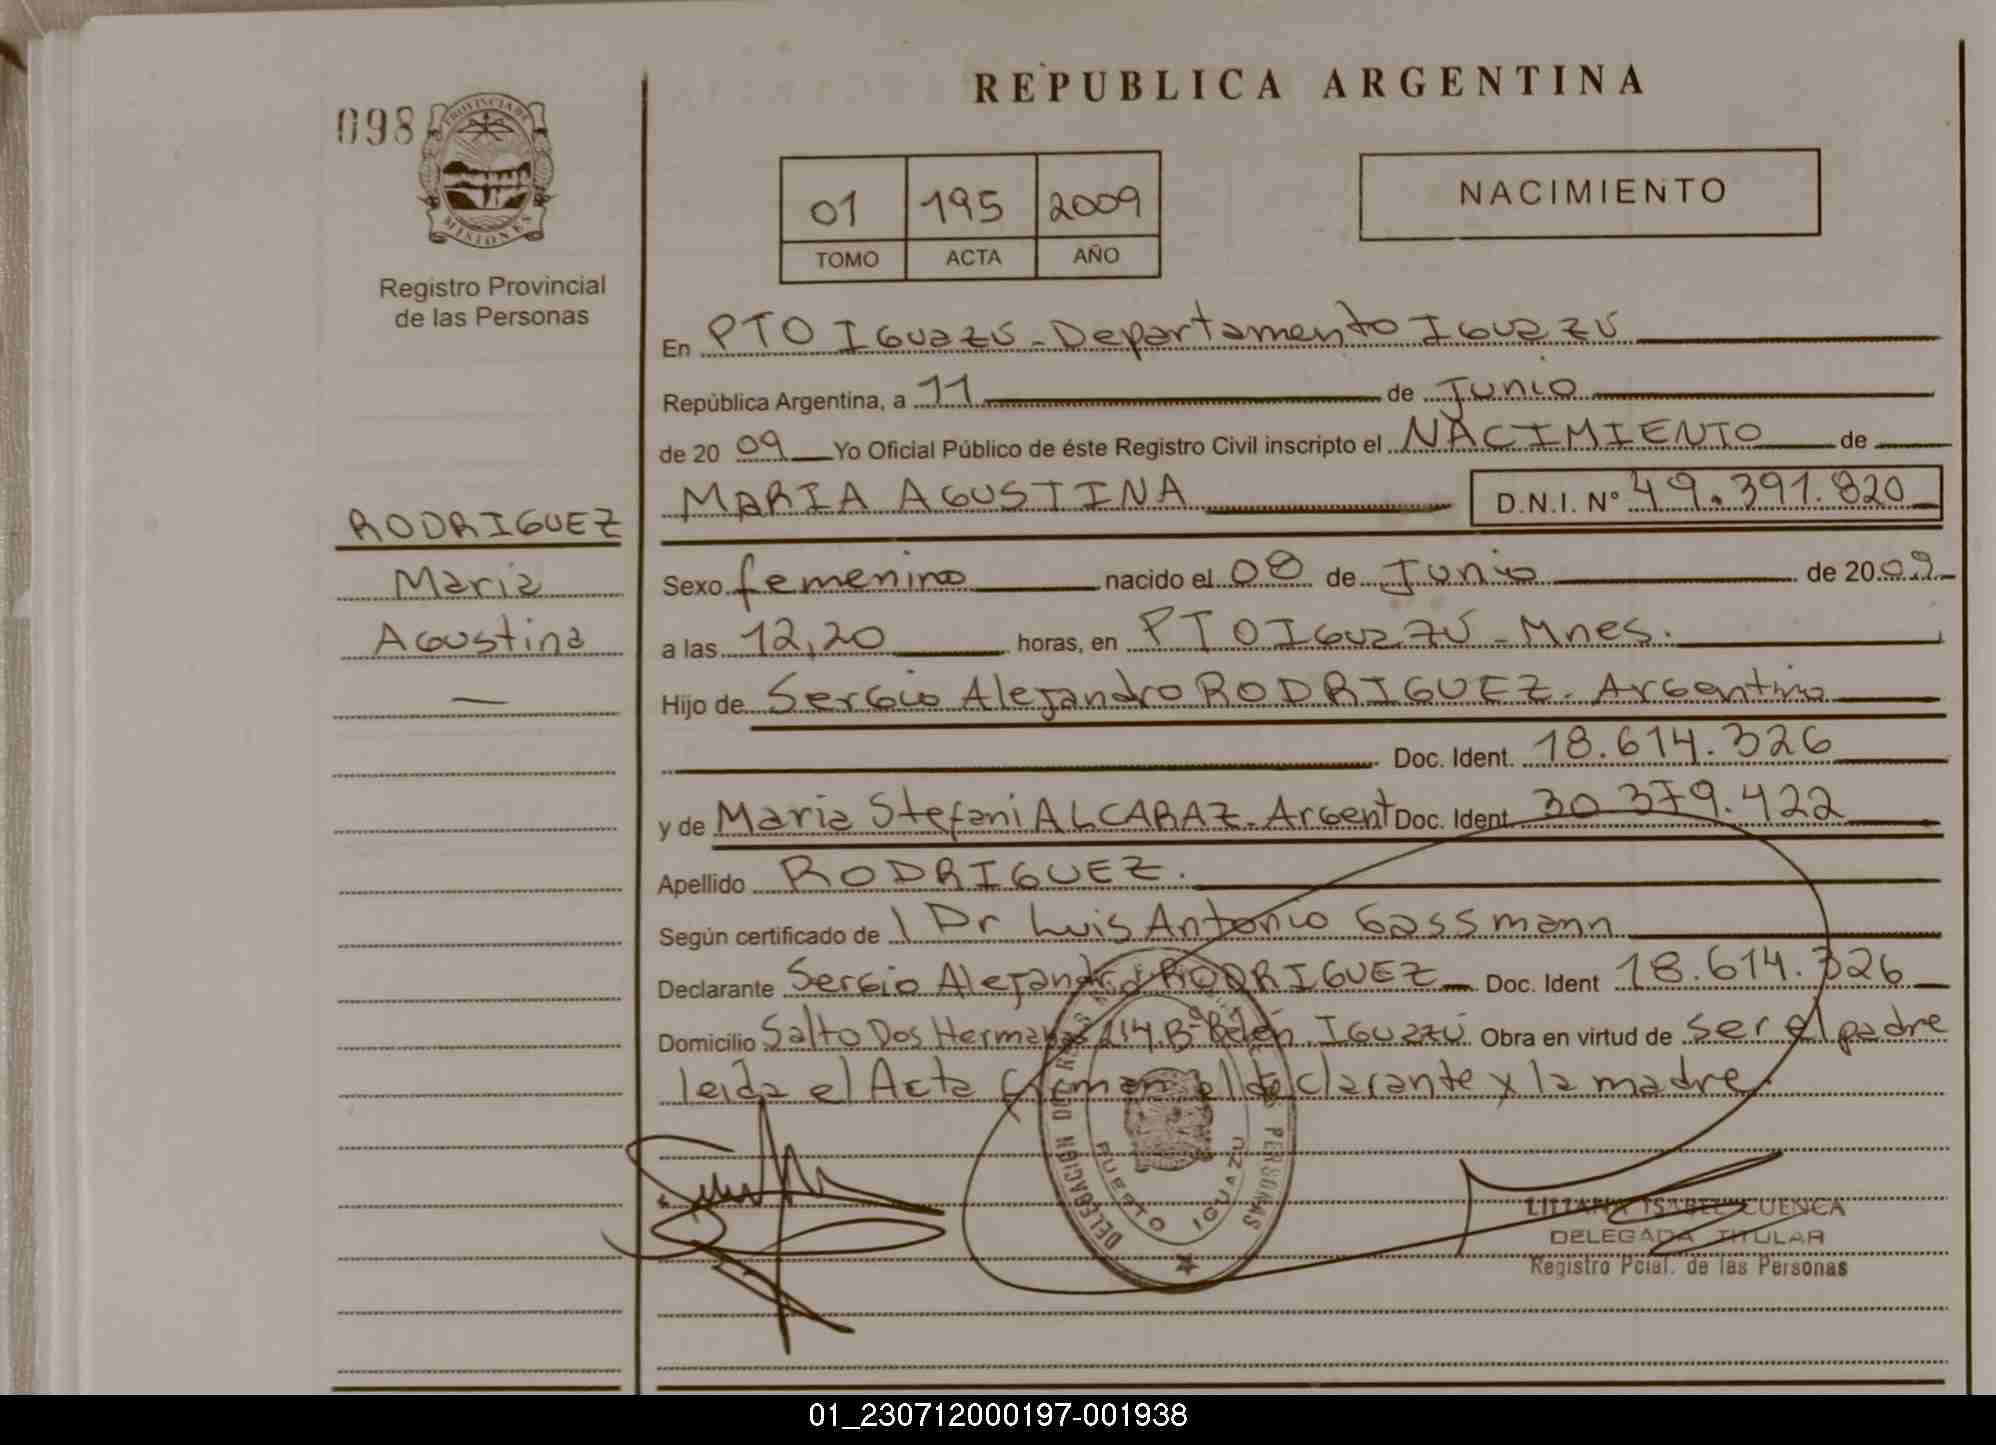 REPUBLICA ARGENTINA
098
PROVINCIA DE
MISIONES
Registro Provincial
de las Personas
01 195 2009
TOMO ACTA AÑO
NACIMIENTO
En PTO IGUAZÚ - Departamento IGUAZÚ
República Argentina, a 11 de Junio
de 2009 Yo Oficial Público de éste Registro Civil inscripto el NACIMIENTO de
MARIA AGUSTINA D.N.I. Nº 49.391.820
RODRIGUEZ
Maria
Agustina
—
Sexo femenino nacido el 08 de Junio de 2009
a las 12,20 horas, en PTO IGUAZÚ - Mnes.
Hijo de Sergio Alejandro RODRIGUEZ - Argentino
Doc. Ident. 18.614.326
y de Maria Stefani ALCARAZ - Argent Doc. Ident. 30 379.422
Apellido RODRIGUEZ.
Según certificado de Dr Luis Antonio Gassmann
Declarante Sergio Alejandro RODRIGUEZ Doc. Ident 18.614.326
Domicilio Salto Dos Hermanas 214 Bº Belén. IGUAZÚ Obra en virtud de ser el padre
leida el Acta firman el declarante y la madre.
DELEGACION DE PERSONAS
PUERTO IGUAZU
LILIANA ISABEL CUENCA
DELEGADA TITULAR
Registro Pcial. de las Personas
01_230712000197-001938